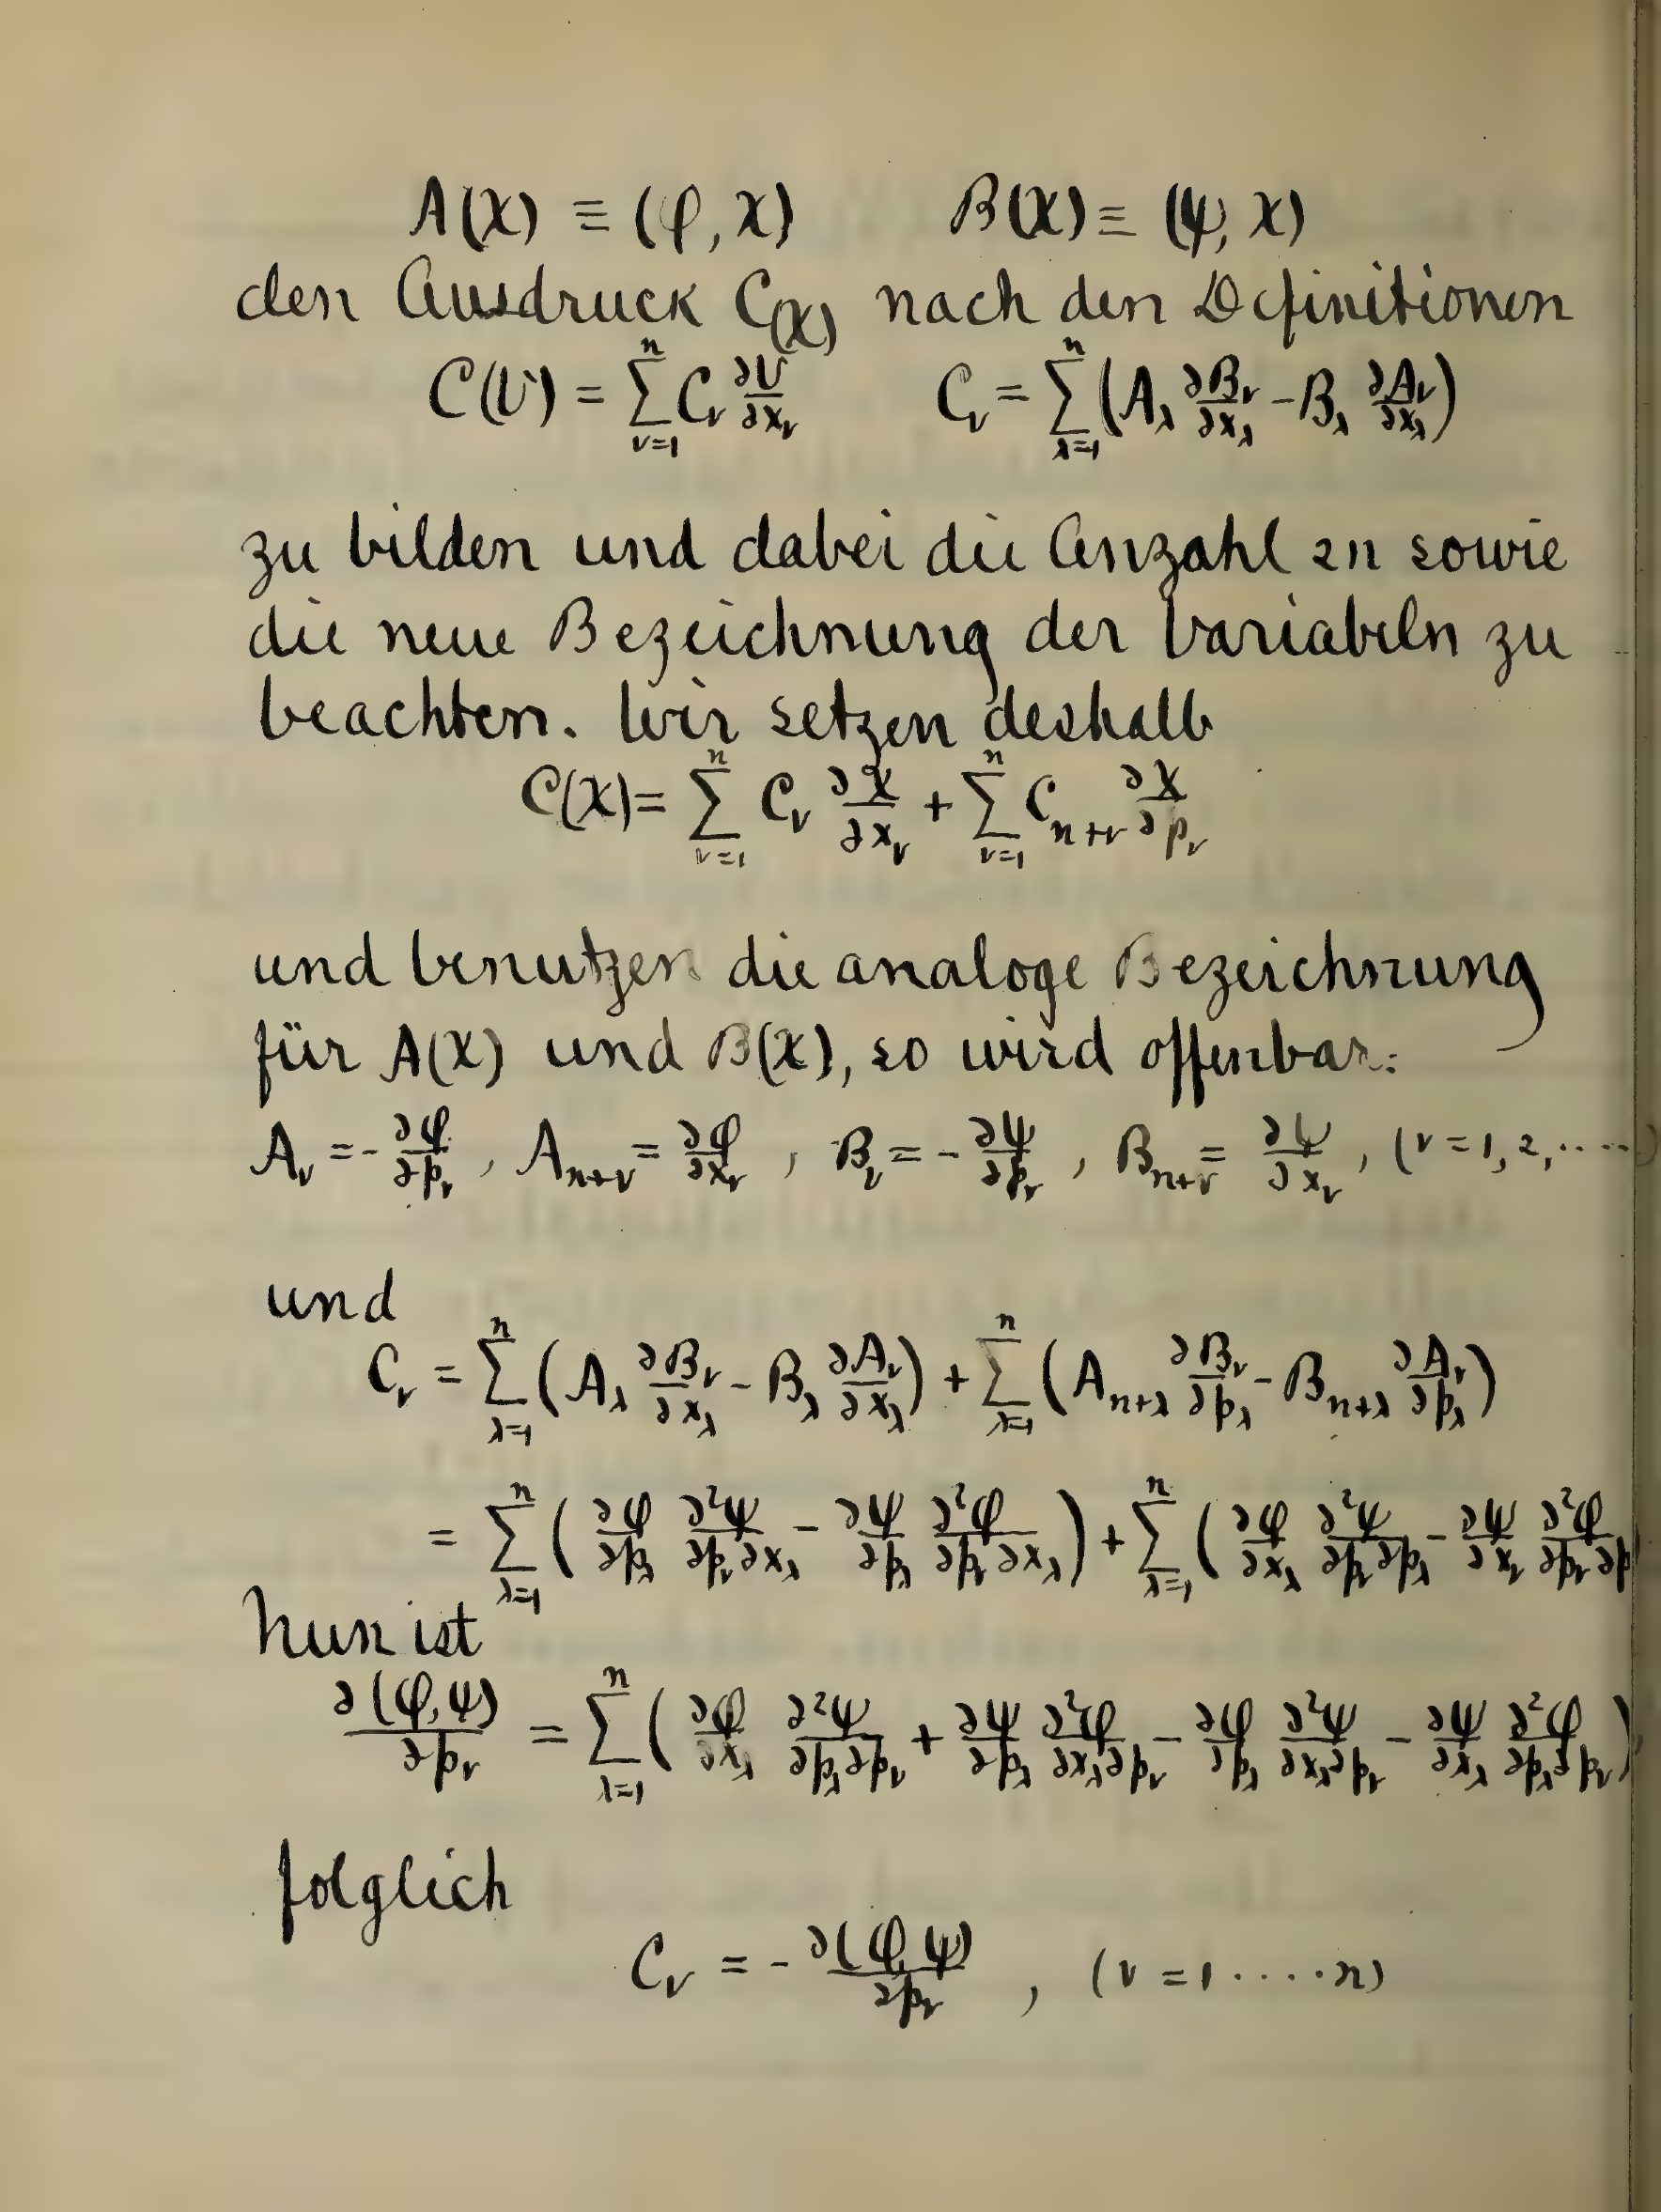 A(χ) ≡ (φ, χ)    B(χ) ≡ (ψ, χ)
den Ausdruck C(χ) nach den Definitionen
C(U) = \sum_{ν=1}^{n} C_ν \frac{∂U}{∂x_ν}    C_ν = \sum_{λ=1}^{n} (A_λ \frac{∂B_ν}{∂x_λ} - B_λ \frac{∂A_ν}{∂x_λ})
zu bilden und dabei die Anzahl 2n sowie
die neue Bezeichnung der Variabeln zu
beachten. Wir setzen deshalb
C(χ) = \sum_{ν=1}^{n} C_ν \frac{∂χ}{∂x_ν} + \sum_{ν=1}^{n} C_{n+ν} \frac{∂χ}{∂p_ν}
und benutzen die analoge Bezeichnung
für A(χ) und B(χ), so wird offenbar:
A_ν = - \frac{∂φ}{∂p_ν}, A_{n+ν} = \frac{∂φ}{∂x_ν}, B_ν = - \frac{∂ψ}{∂p_ν}, B_{n+ν} = \frac{∂ψ}{∂x_ν}, (ν = 1, 2, ....)
und
C_ν = \sum_{λ=1}^{n} (A_λ \frac{∂B_ν}{∂x_λ} - B_λ \frac{∂A_ν}{∂x_λ}) + \sum_{λ=1}^{n} (A_{n+λ} \frac{∂B_ν}{∂p_λ} - B_{n+λ} \frac{∂A_ν}{∂p_λ})
= \sum_{λ=1}^{n} (\frac{∂φ}{∂p_λ} \frac{∂²ψ}{∂p_ν∂x_λ} - \frac{∂ψ}{∂p_λ} \frac{∂²φ}{∂p_ν∂x_λ}) + \sum_{λ=1}^{n} (\frac{∂φ}{∂x_λ} \frac{∂²ψ}{∂p_ν∂p_λ} - \frac{∂ψ}{∂x_ν} \frac{∂²φ}{∂p_ν∂p
Nun ist
\frac{∂(φ,ψ)}{∂p_ν} = \sum_{λ=1}^{n} (\frac{∂φ}{∂x_λ} \frac{∂²ψ}{∂p_λ∂p_ν} + \frac{∂ψ}{∂p_λ} \frac{∂²φ}{∂x_λ∂p_ν} - \frac{∂φ}{∂p_λ} \frac{∂²ψ}{∂x_λ∂p_ν} - \frac{∂ψ}{∂x_λ} \frac{∂²φ}{∂p_λ∂p_ν})
folglich
C_ν = - \frac{∂(φ,ψ)}{∂p_ν}, (ν = 1 ..... n)